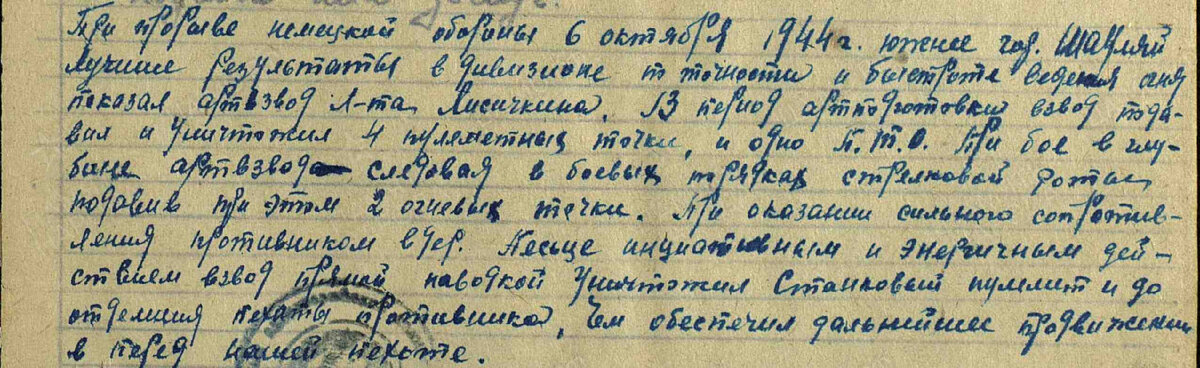 При прорыве немецкой обороны 6 октября 1944г. южнее гор. Шауляй
лучшие результаты в дивизионе по точности и быстроте ведения огня
показал артвзвод Л-та Лисичкина. В период артподготовки взвод пода-
вил и уничтожил 4 пулеметных точки, и одно П.Т.О. При бое в глу-
бине артвзвод следовал в боевых порядках стрелковой роты
подавив при этом 2 огневых точки. При оказании сильного сопротив-
ления противником в дер. инциативным и энергичным дей-
ствием взвод прямой наводкой уничтожил Станковый пулемит и до
отделения пехоты противника, Чем обеспечил дальнейшее продвижение
в перед нашей пехоте.